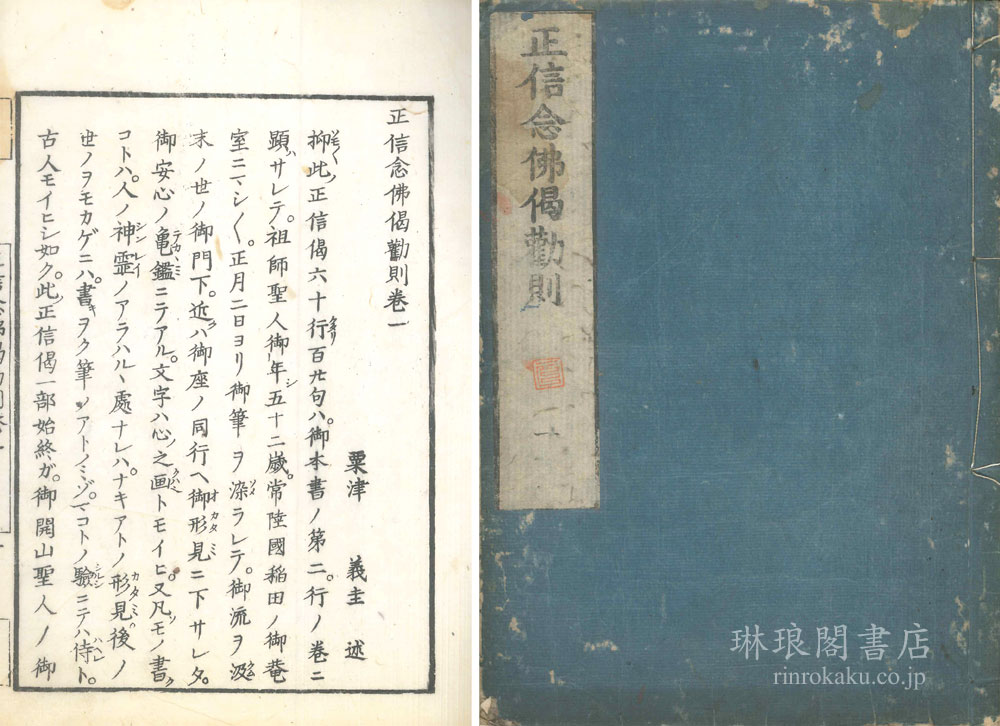 正信念佛偈勸則
一
十
正信念佛偈勸則卷一
粟津 義圭 述
抑此正信偈六十行百廿句ハ。御本書ノ第二。行ノ卷ニ
顕ハサレテ。祖師聖人御年五十二歳。常陸國稲田ノ御菴
室ニマシ〱。正月二日ヨリ御筆ヲ染ラレテ。御流ヲ汲
末ノ世ノ御門下。近ハ御座ノ同行ヘ御形見ニ下サレタ。
御安心ノ亀鑑ニテアル。文字ハ心之画トモイヒ。又凡ソモノ書
コトハ。人ノ神霊ノアラハルヽ處ナレハ。ナキアトノ形見。後ノ
世ノヲモカゲニハ。書ヲク筆ノアトノミゾ。マコトノ驗ニテハ侍ト。
古人モイヒシ如ク。此正信偈一部始終ガ。御開山聖人ノ御
琳琅閣書店
rinrokaku.co.jp